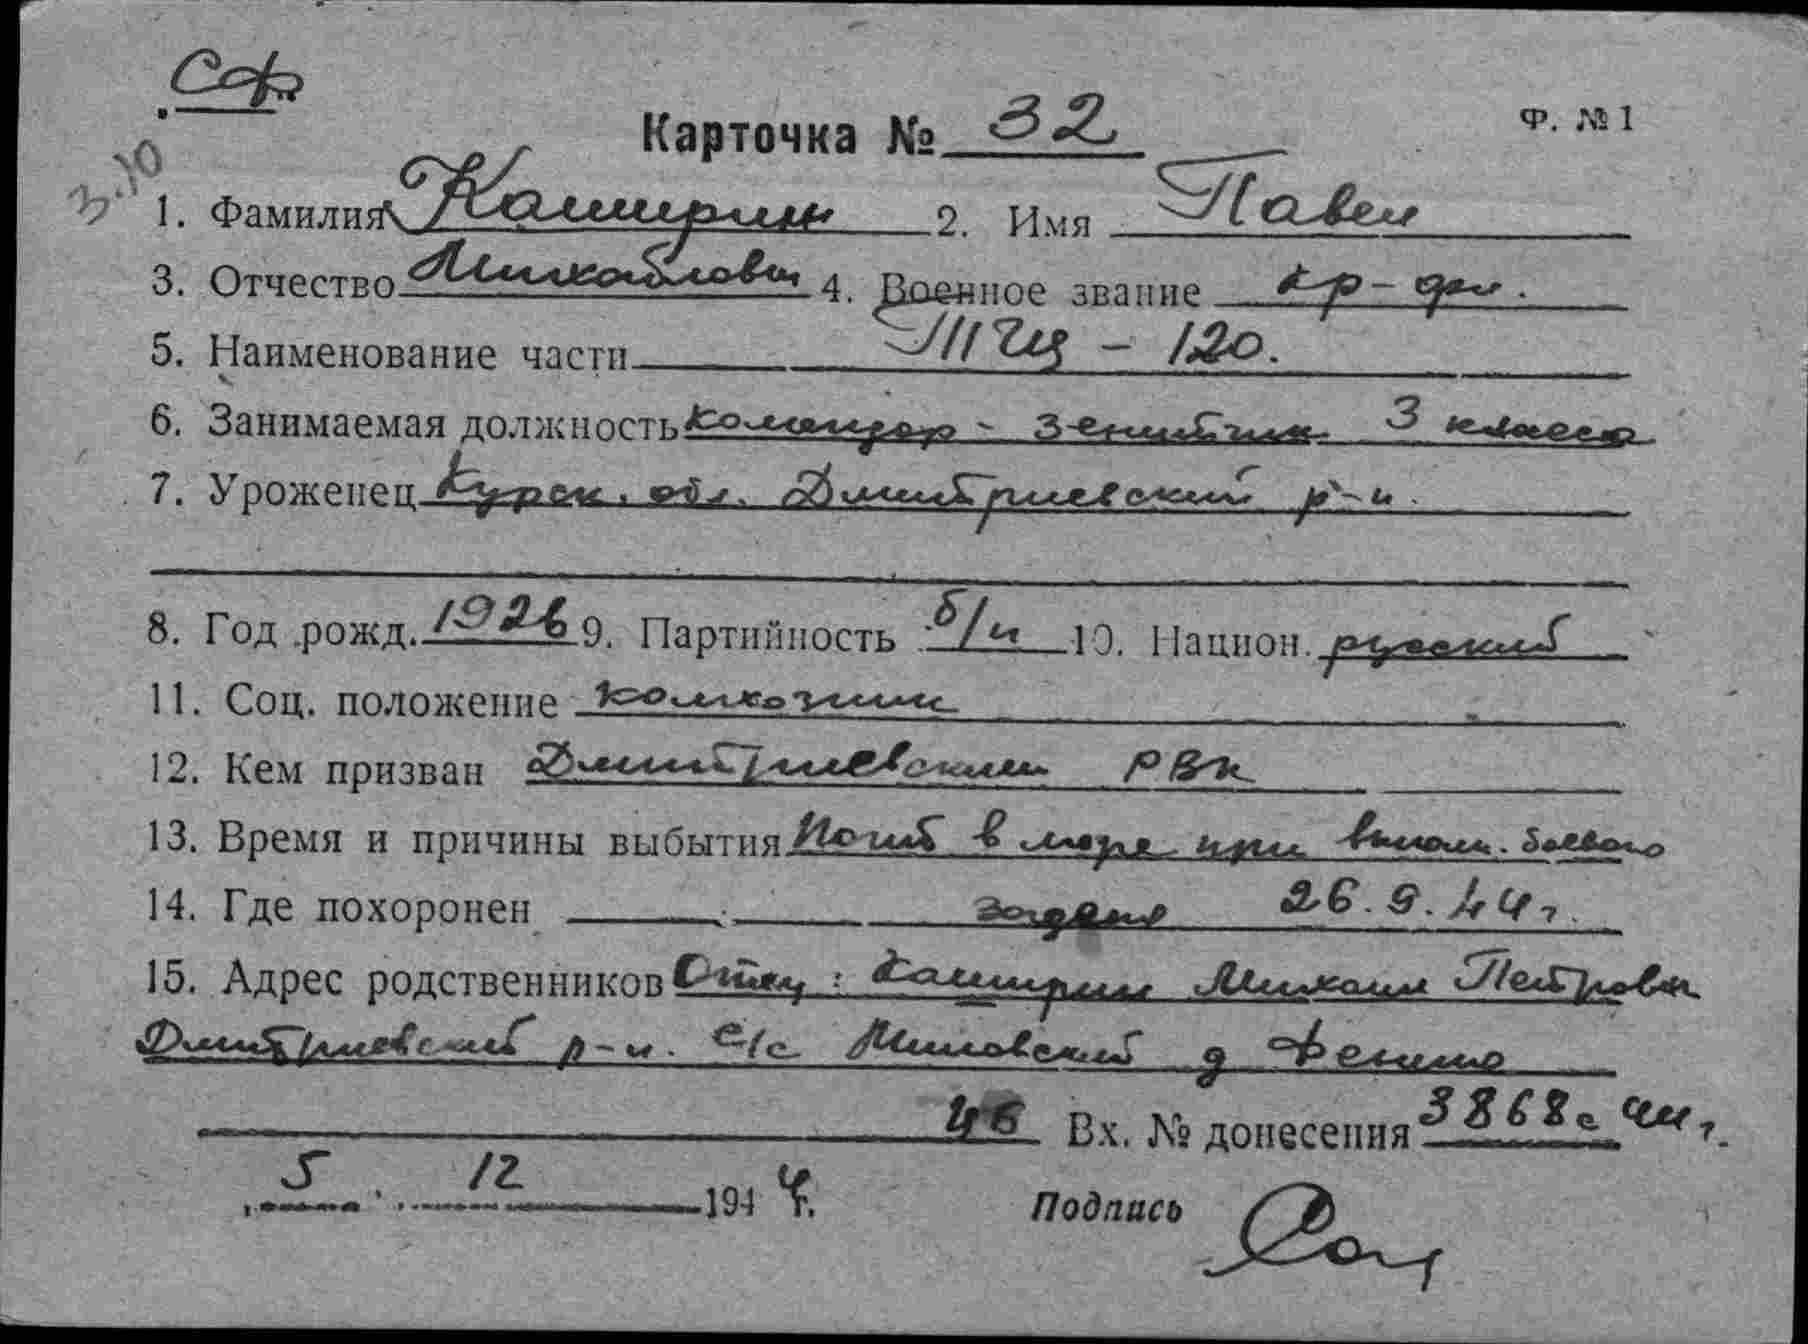 СФ
Карточка № 32
Ф. № 1
3.10
1. Фамилия Каширин 2. Имя Павел
3. Отчество Михайлович 4. Военное звание кр-фл.
5. Наименование части ТЩ - 120.
6. Занимаемая должность командор - зенитчик 3 класса
7. Уроженец Курск. обл. Дмитриевский р-н.
8. Год рожд. 1926 9. Партийность б/п 10. Национ. русский
11. Соц. положение колхозник
12. Кем призван Дмитриевским РВК
13. Время и причины выбытия Погиб в море при выполн. боевого
14. Где похоронен задания 26.9.44г.
15. Адрес родственников Отец: Каширин Михаил Петрович
Дмитриевский р-н. с/с д
Вх. № донесения 3868с
5. 12 1944г.
Подпись